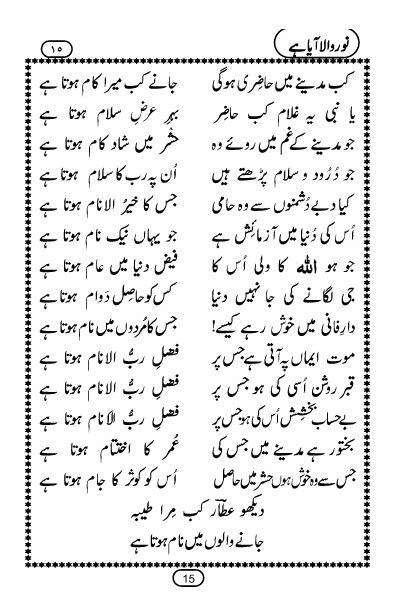 نور والا آیا ہے ۱۵
کب مدینے میں حاضری ہوگی جانے کب میرا کام ہوتا ہے
یا نبی یہ غلام کب حاضر بہرِ عرضِ سلام ہوتا ہے
جو مدینے کے غم میں روئے وہ حشر میں شاد کام ہوتا ہے
جو دُرُود و سلام پڑھتے ہیں اُن پہ رب کا سلام ہوتا ہے
کیا دبے دُشمنوں سے وہ حامی جس کا خیرُ الانام ہوتا ہے
اُس کی دُنیا میں آزمائش ہے جو یہاں نیک نام ہوتا ہے
جو ہو اللہ کا ولی اُس کا فیض دنیا میں عام ہوتا ہے
جی لگانے کی جا نہیں دنیا کس کو حاصِل دَوام ہوتا ہے
دارِفانی میں خوش رہے کیسے! جس کا مُردوں میں نام ہوتا ہے
موت ایماں پہ آتی ہے جس پر فضلِ ربُّ الانام ہوتا ہے
قبر روشن اُسی کی ہو جس پر فضلِ ربُّ الانام ہوتا ہے
بے حساب بخشِش اُس کی ہو جس پر فضلِ ربُّ الانام ہوتا ہے
بختور ہے مدینے میں جس کی عُمر کا اختِتام ہوتا ہے
جس سے وہ خوش ہوں حشر میں حاصل اُس کو کوثر کا جام ہوتا ہے
دیکھو عطّارؔ کب مِرا طیبہ
جانے والوں میں نام ہوتا ہے
15